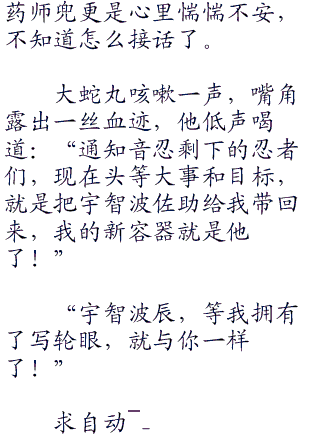 药师兜更是心里惴惴不安，
不知道怎么接话了。
大蛇丸咳嗽一声，嘴角
露出一丝血迹，他低声喝
道：“通知音忍剩下的忍者
们，现在头等大事和目标，
就是把宇智波佐助给我带回
来，我的新容器就是他
了！”
“宇智波辰，等我拥有
了写轮眼，就与你一样
了！”
求自动